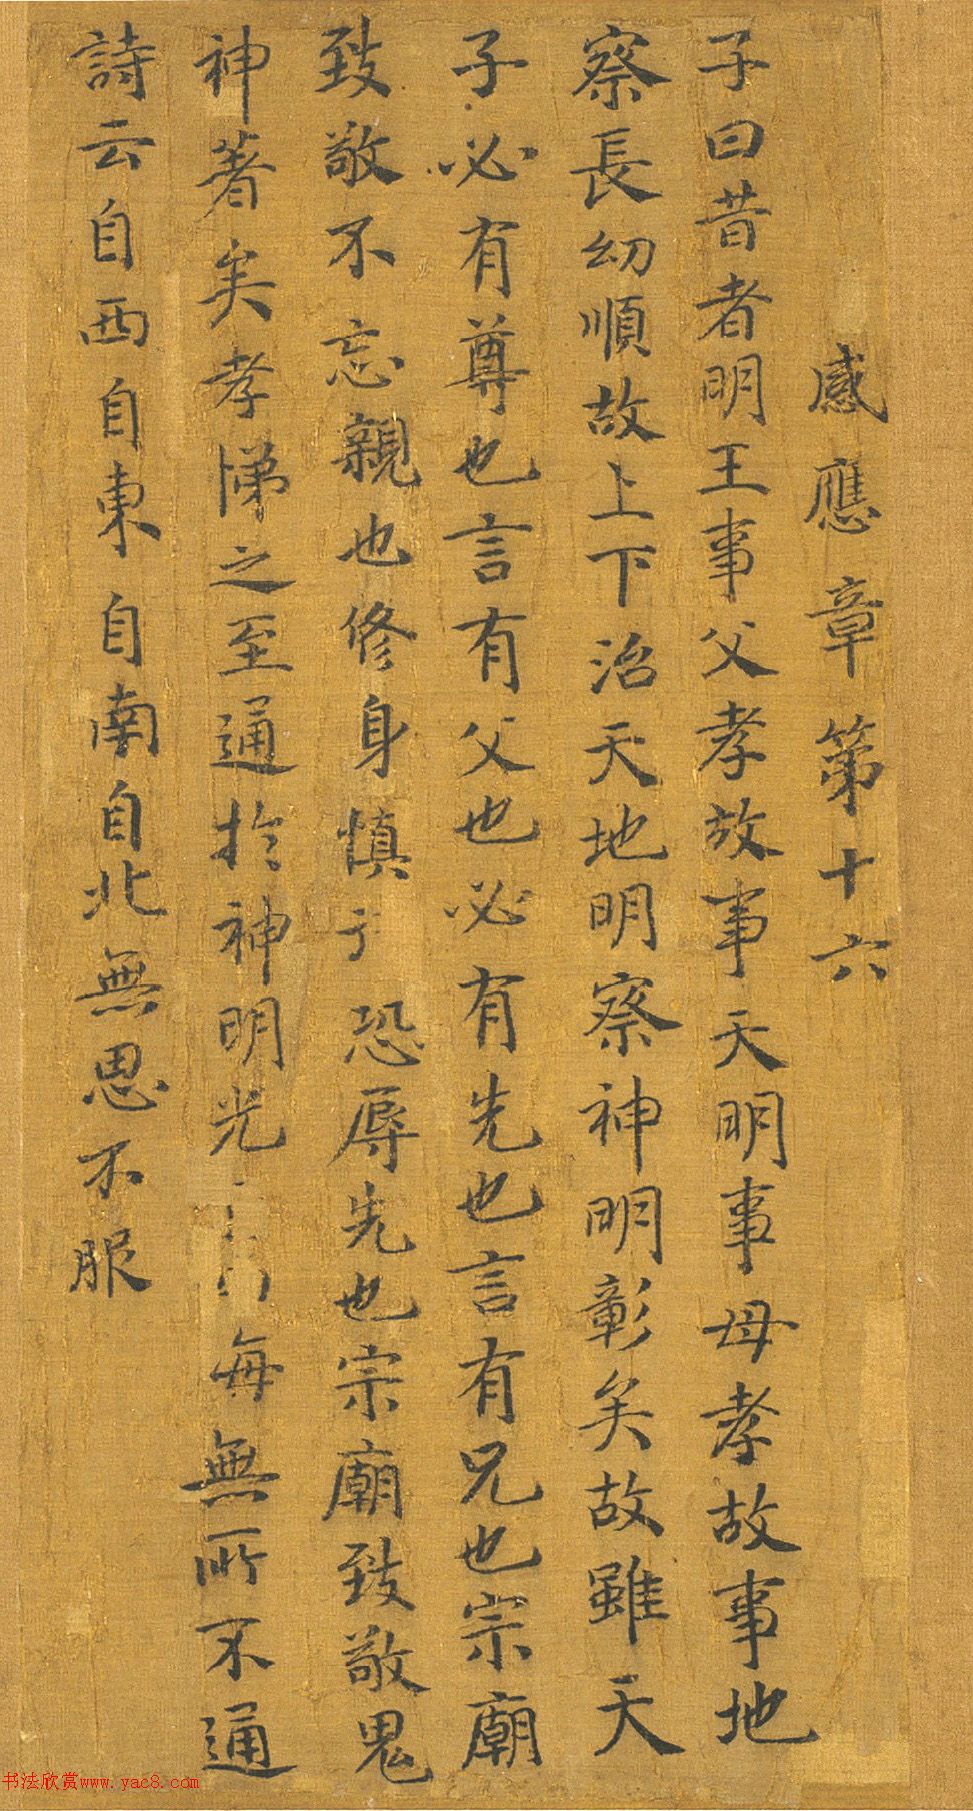 感應章第十六
子曰昔者明王事父孝故事天明事母孝故事地
察長幼順故上下治天地明察神明彰矣故雖天
子必有尊也言有父也必有先也言有兄也宗廟
致敬不忘親也修身慎恐辱先也宗廟致敬鬼
神著矣孝悌之至通於神明光無所不通
詩云自西自東自南自北無思不服
书法欣赏www.yac8.com